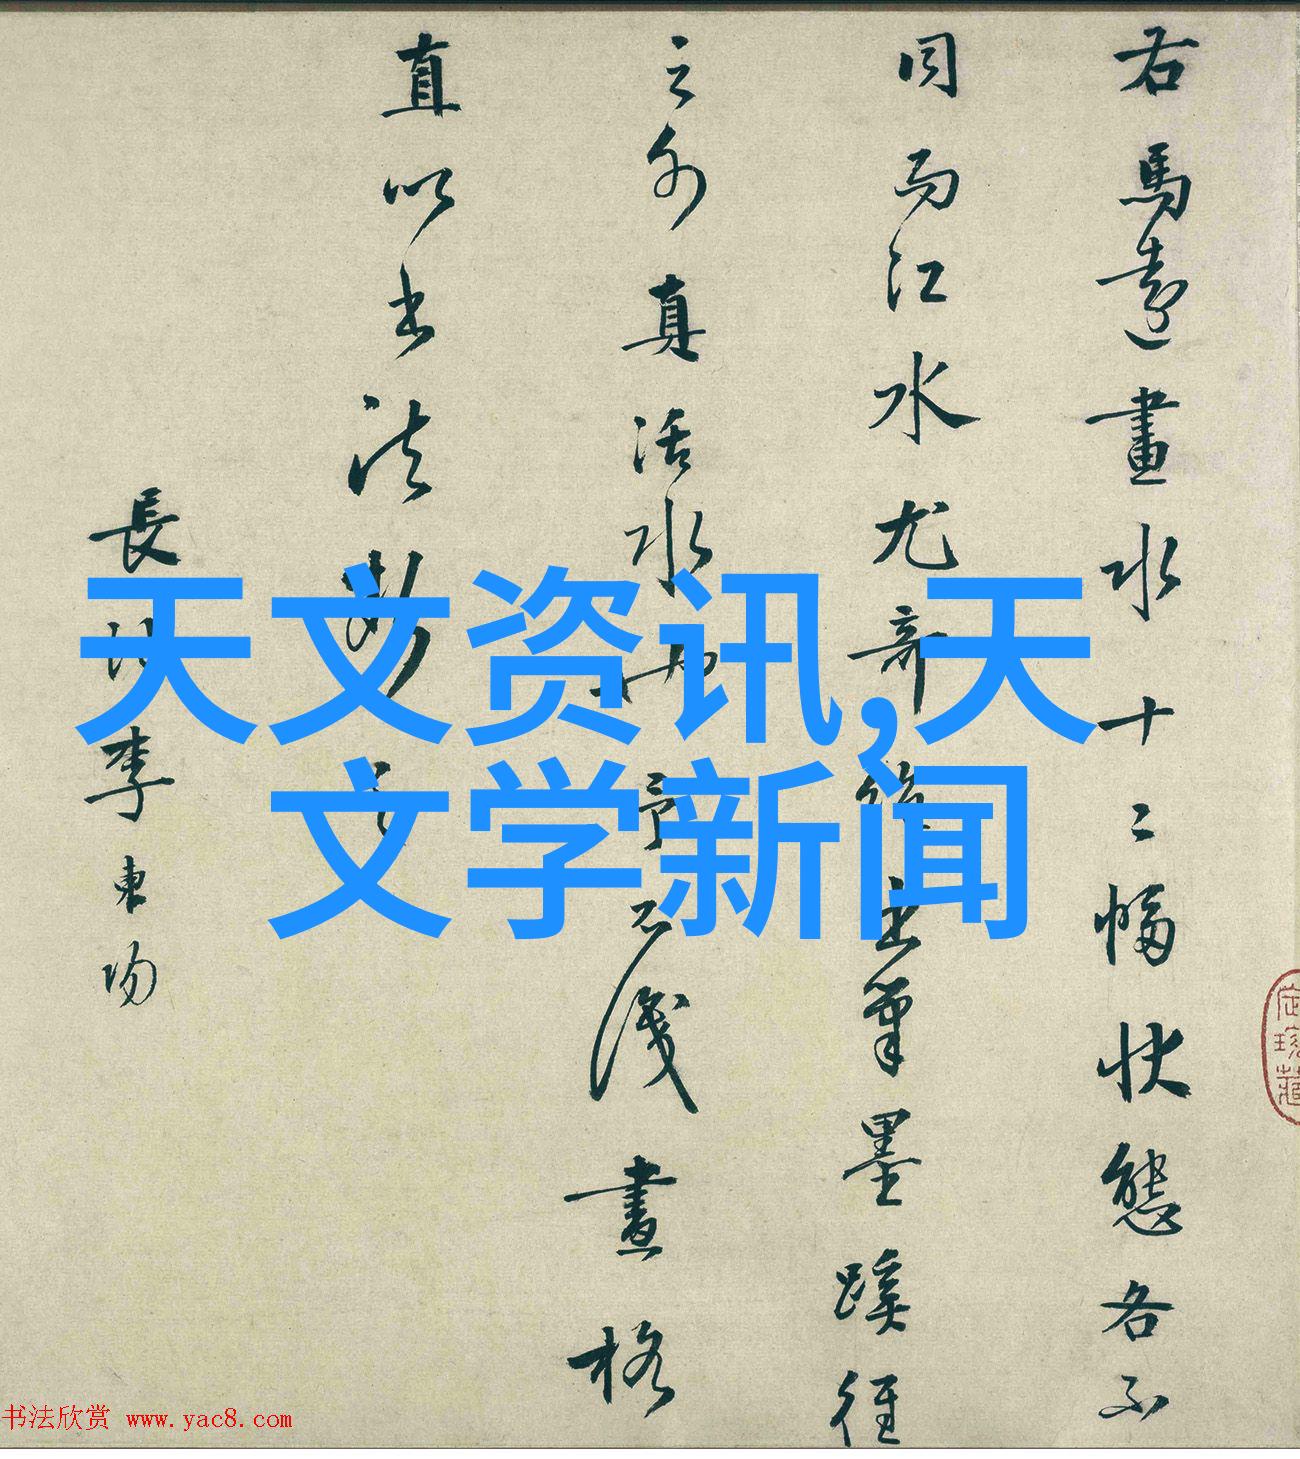 右馬遠畫水十二幅狀態各不
同而江水尤奇絕出筆墨蹊徑
之外真活水也予不識畫格
直以書法之
長沙李東陽
天文资讯,天
文学新闻
珍藏
书法欣赏 www.yac8.com